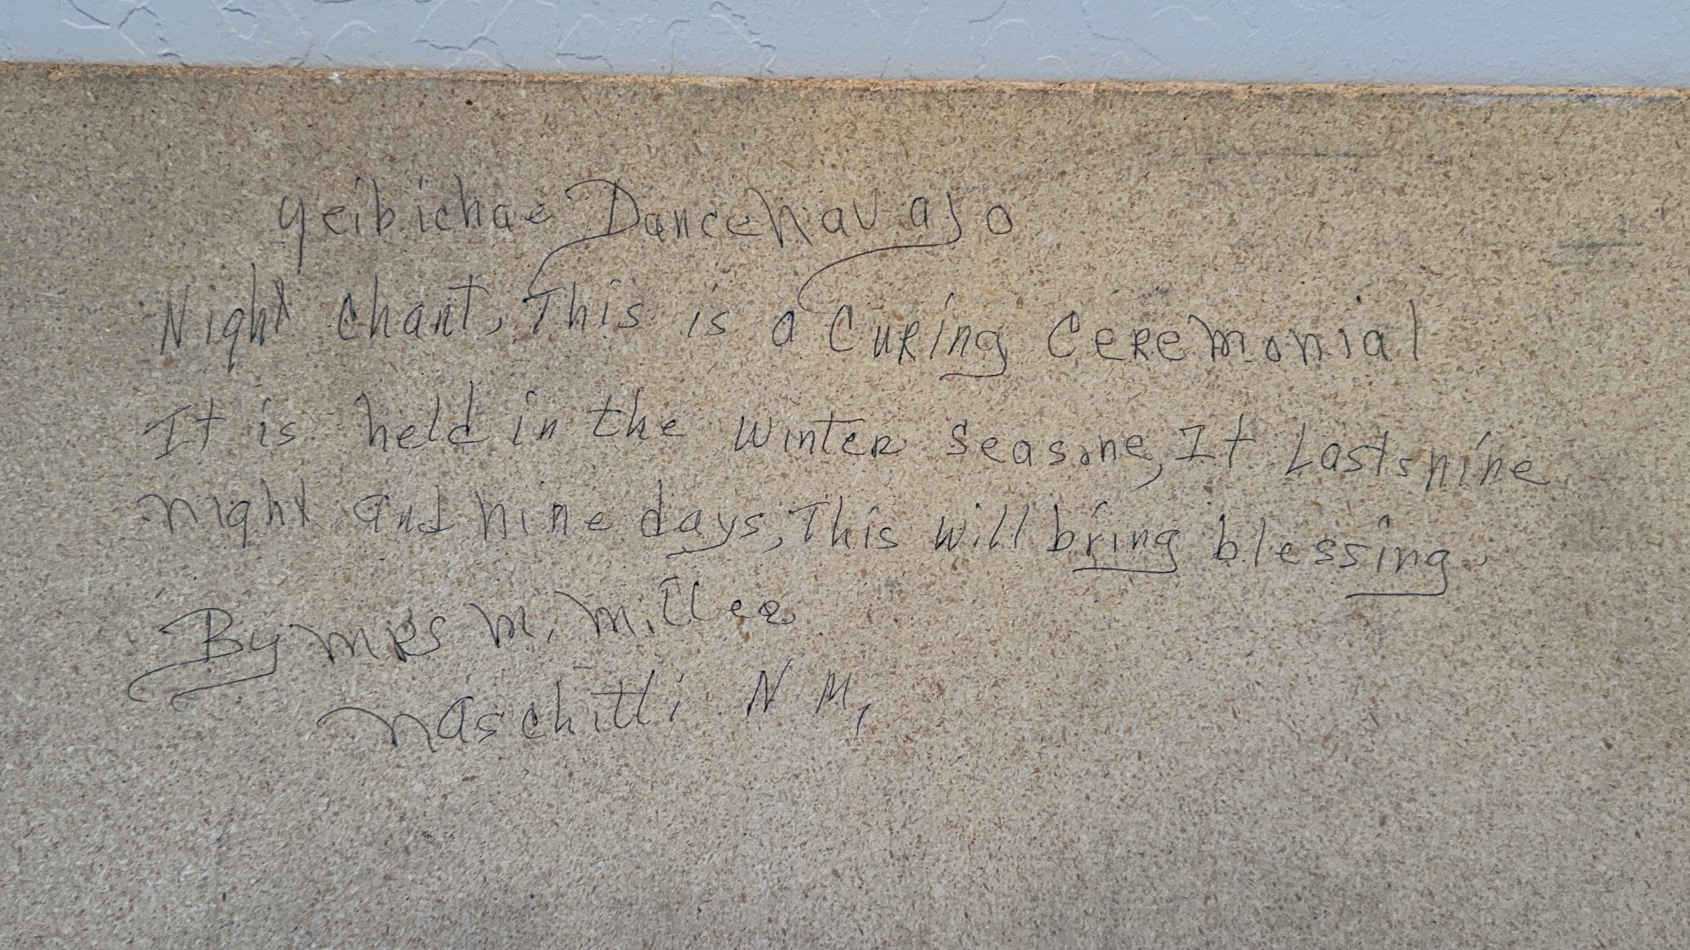 Yeibichae Dance Navajo
Night Chant, This is a Curing Ceremonial
It is held in the Winter Seasone, It Lasts nine
night and nine days, This will bring blessing.
By Mrs M. Miller
Naschitti N M,